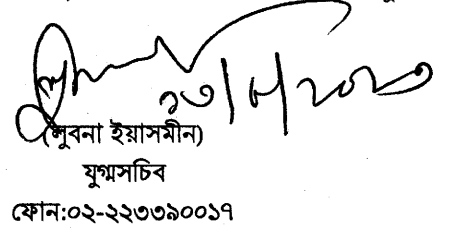 ১৩/৮/২০২৩
(লুবনা ইয়াসমীন)
যুগ্মসচিব
ফোন:০২-২২৩৩৯০০১৭